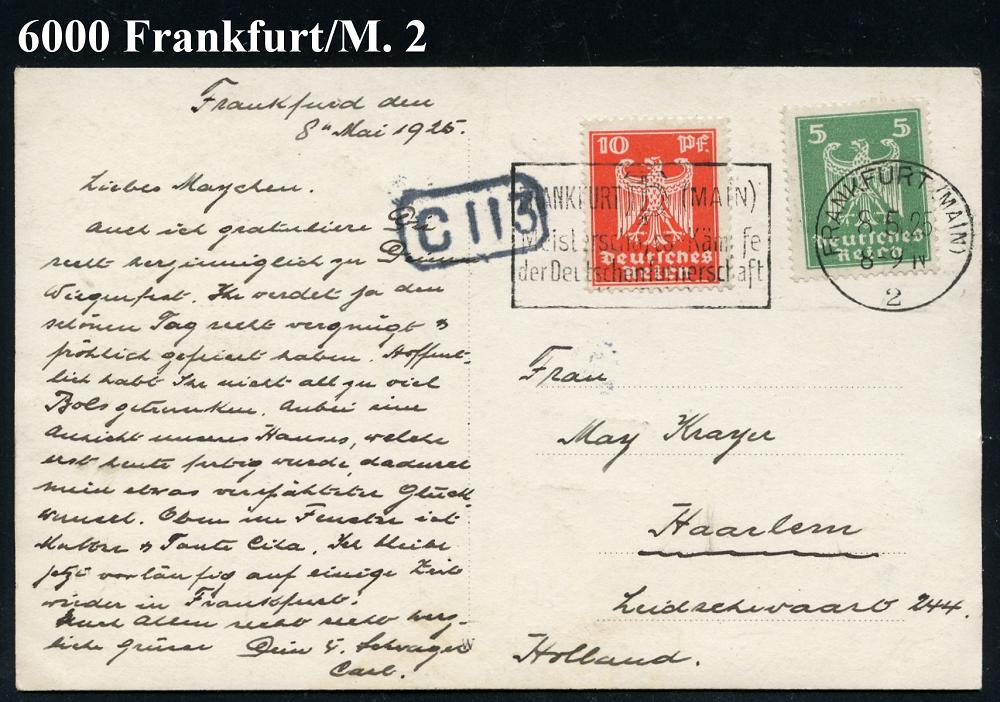 6000 Frankfurt/M. 2
Frankfurt den
8" Mai 1925.
Liebes Maychen.
Auch ich gratuliere Dir
recht herzinniglich zu Deinem
Wiegenfest. Ihr werdet ja den
schönen Tag recht vergnügt &
fröhlich gefeiert haben. Hoffent-
lich habt Ihr nicht all zu viel
Bols getrunken. Anbei eine
Ansicht unseres Hauses, welche
erst heute fertig wurde, dadurch
mein etwas verspäteter Glück-
wunsch. Oben im Fenster ist
Mutter & Tante Cila. Ich bleibe
jetzt vorläufig auf einige Zeit
wieder in Frankfurt.
Euch Allen recht recht herz-
liche Grüsse Dein Schwager
Carl.
W
C 113
10 Pf.
Deutsches
Reich
5 5
Deutsches
Reich
FRANKFURT (MAIN)
Meisterschafts-Kämpfe
der Deutschen Turnerschaft
FRANKFURT (MAIN)
8.5.25
8-9 N
2
Frau
May Krayer
Haarlem
Leidschevaart 244.
Holland.